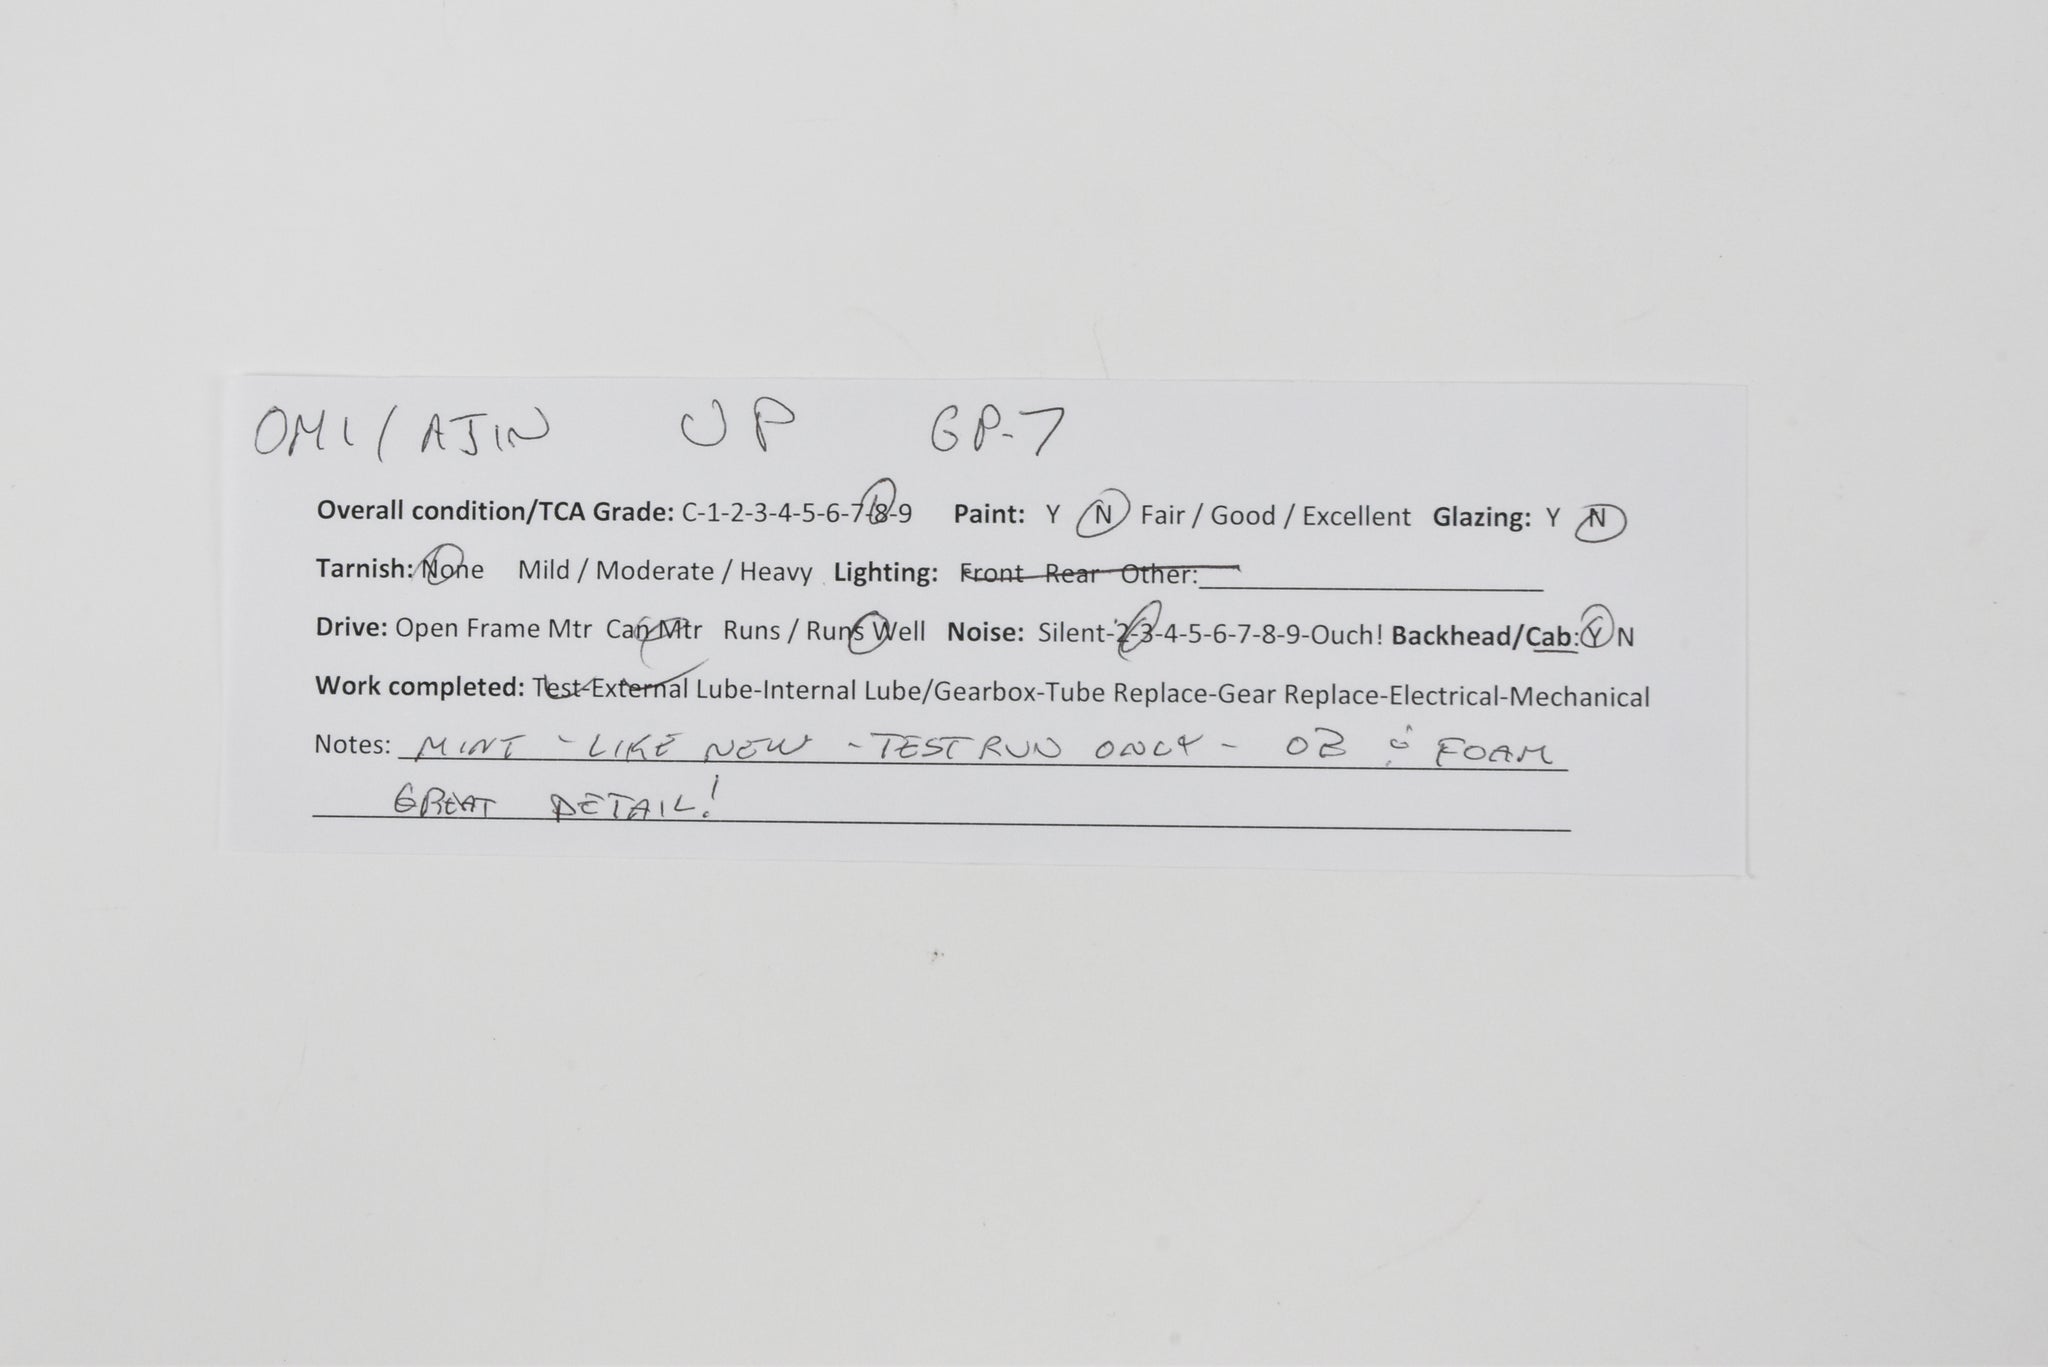 OMI/AJIN UP GP-7
Overall condition/TCA Grade: C-1-2-3-4-5-6-7-8-9 Paint: Y N Fair / Good / Excellent Glazing: Y N
Tarnish: None Mild / Moderate / Heavy Lighting: Front Rear Other:
Drive: Open Frame Mtr Can Mtr Runs / Runs Well Noise: Silent-2-3-4-5-6-7-8-9-Ouch! Backhead/Cab: Y N
Work completed: Test-External Lube-Internal Lube/Gearbox-Tube Replace-Gear Replace-Electrical-Mechanical
Notes: MINT - LIKE NEW - TEST RUN ONLY - OB & FOAM
GREAT DETAIL!